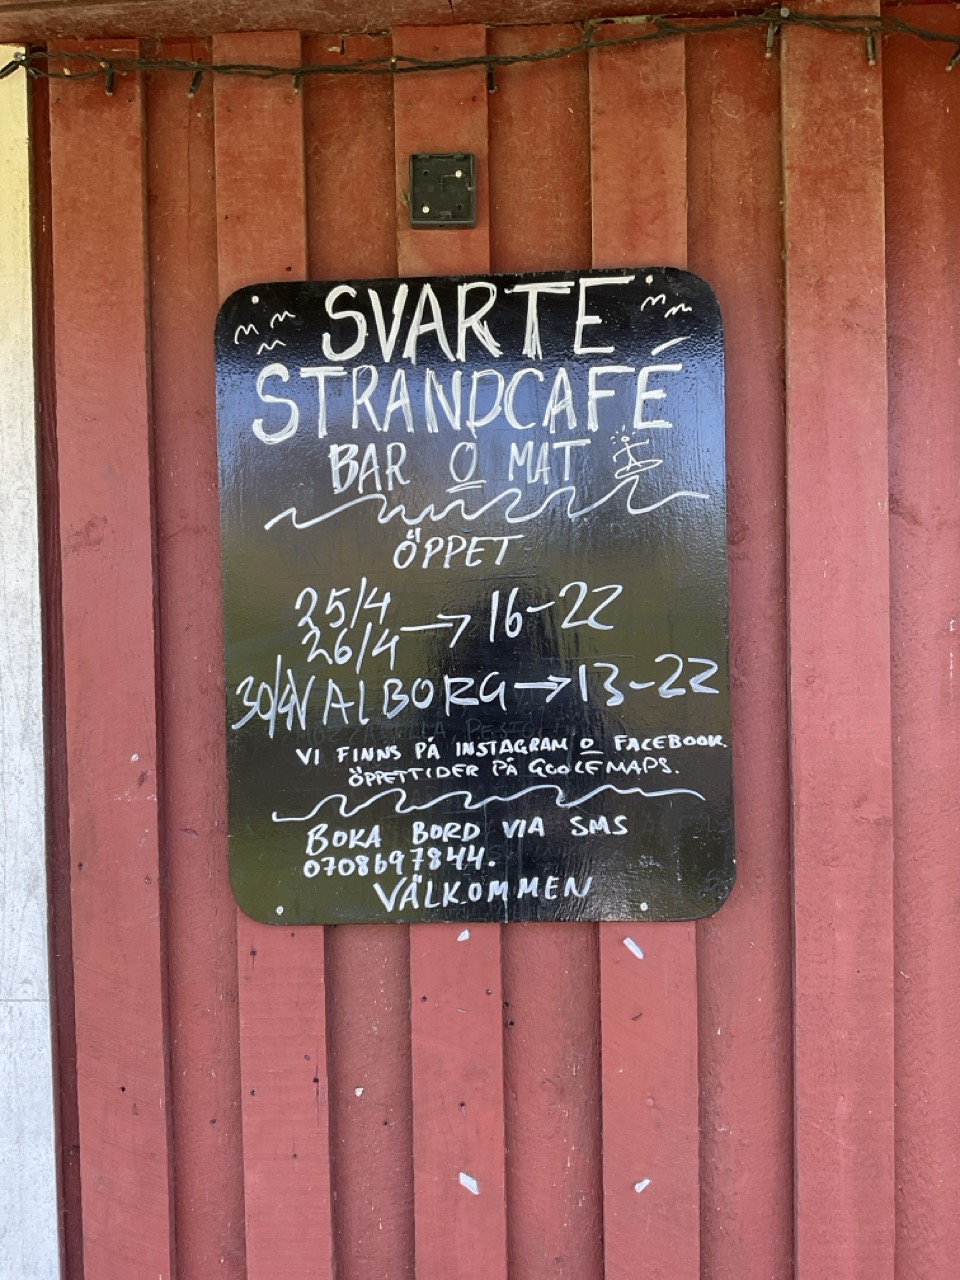 SVARTE
STRANDCAFÉ
BAR O MAT
ÖPPET
25/4
26/4 → 16-22
30/4 VALBORG → 13-22
VI FINNS PÅ INSTAGRAM O FACEBOOK.
ÖPPETTIDER PÅ GOOGLEMAPS.
BOKA BORD VIA SMS
0708697844.
VÄLKOMMEN